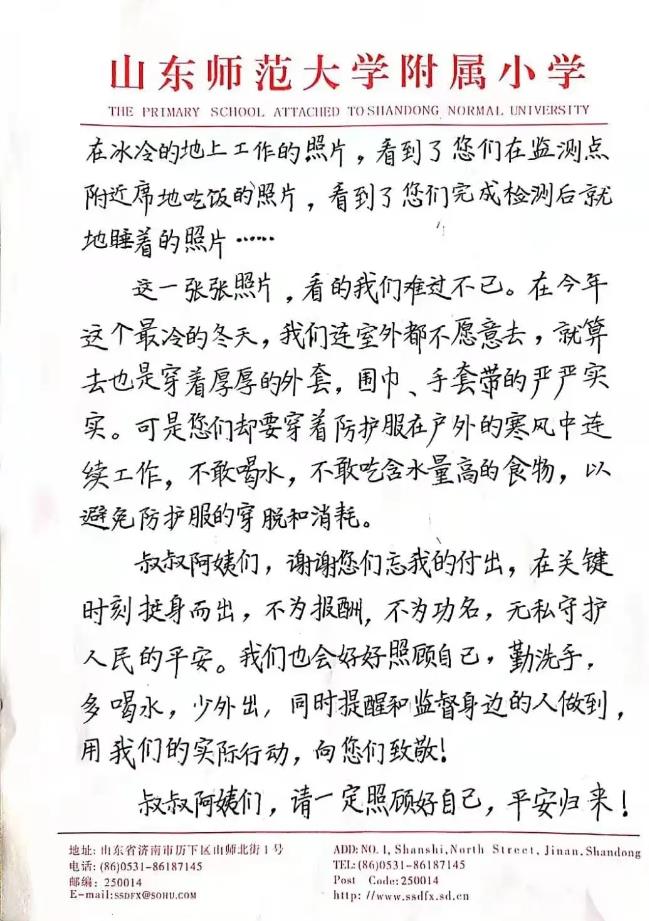 山东师范大学附属小学
THE PRIMARY SCHOOL ATTACHED TO SHANDONG NORMAL UNIVERSITY
在冰冷的地上工作的照片，看到了您们在监测点
附近席地吃饭的照片，看到了您们完成检测后就
地睡着的照片……
这一张张照片，看的我们难过不已。在今年
这个最冷的冬天，我们连室外都不愿意去，就算
去也是穿着厚厚的外套，围巾、手套带的严严实
实。可是您们却要穿着防护服在户外的寒风中连
续工作，不敢喝水，不敢吃含水量高的食物，以
避免防护服的穿脱和消耗。
叔叔阿姨们，谢谢您们忘我的付出，在关键
时刻挺身而出，不为报酬，不为功名，无私守护
人民的平安。我们也会好好照顾自己，勤洗手，
多喝水，少外出，同时提醒和监督身边的人做到，
用我们的实际行动，向您们致敬！
叔叔阿姨们，请一定照顾好自己，平安归来！
地址：山东省济南市历下区山师北街1号
电话：(86)0531-86187145
邮编：250014
E-mail:SSDFX@SOHU.COM
ADD:NO.1, Shanshi,North Street, Jinan,Shandong
TEL:(86)0531-86187145
Post Code:250014
http://www.ssdfx.sd.cn